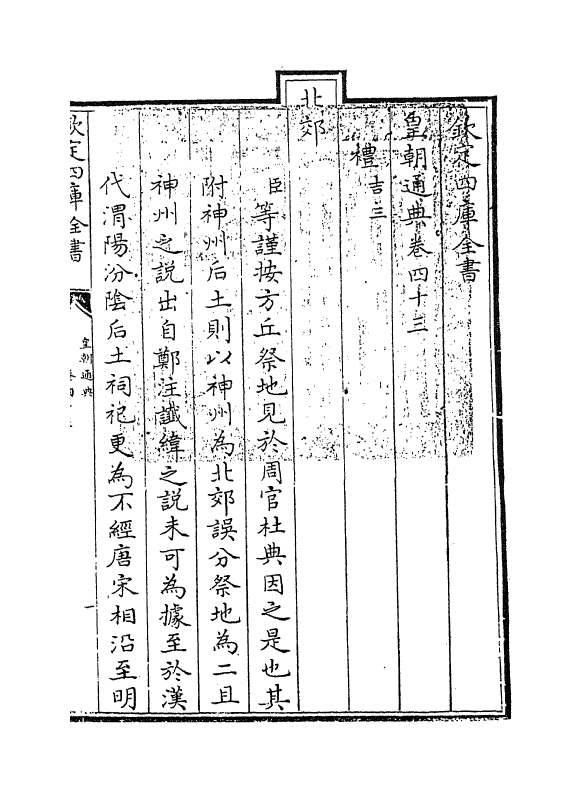 欽定四庫全書
皇朝通典卷四十三
禮吉三
北郊
臣等謹按方丘祭地見於周官杜典因之是也其
附神州后土則以神州為北郊誤分祭地為二且
神州之説出自鄭注讖緯之説未可為據至於漢
代渭陽汾陰后土祠祀更為不經唐宋相沿至明
欽定四庫全書
皇朝通典